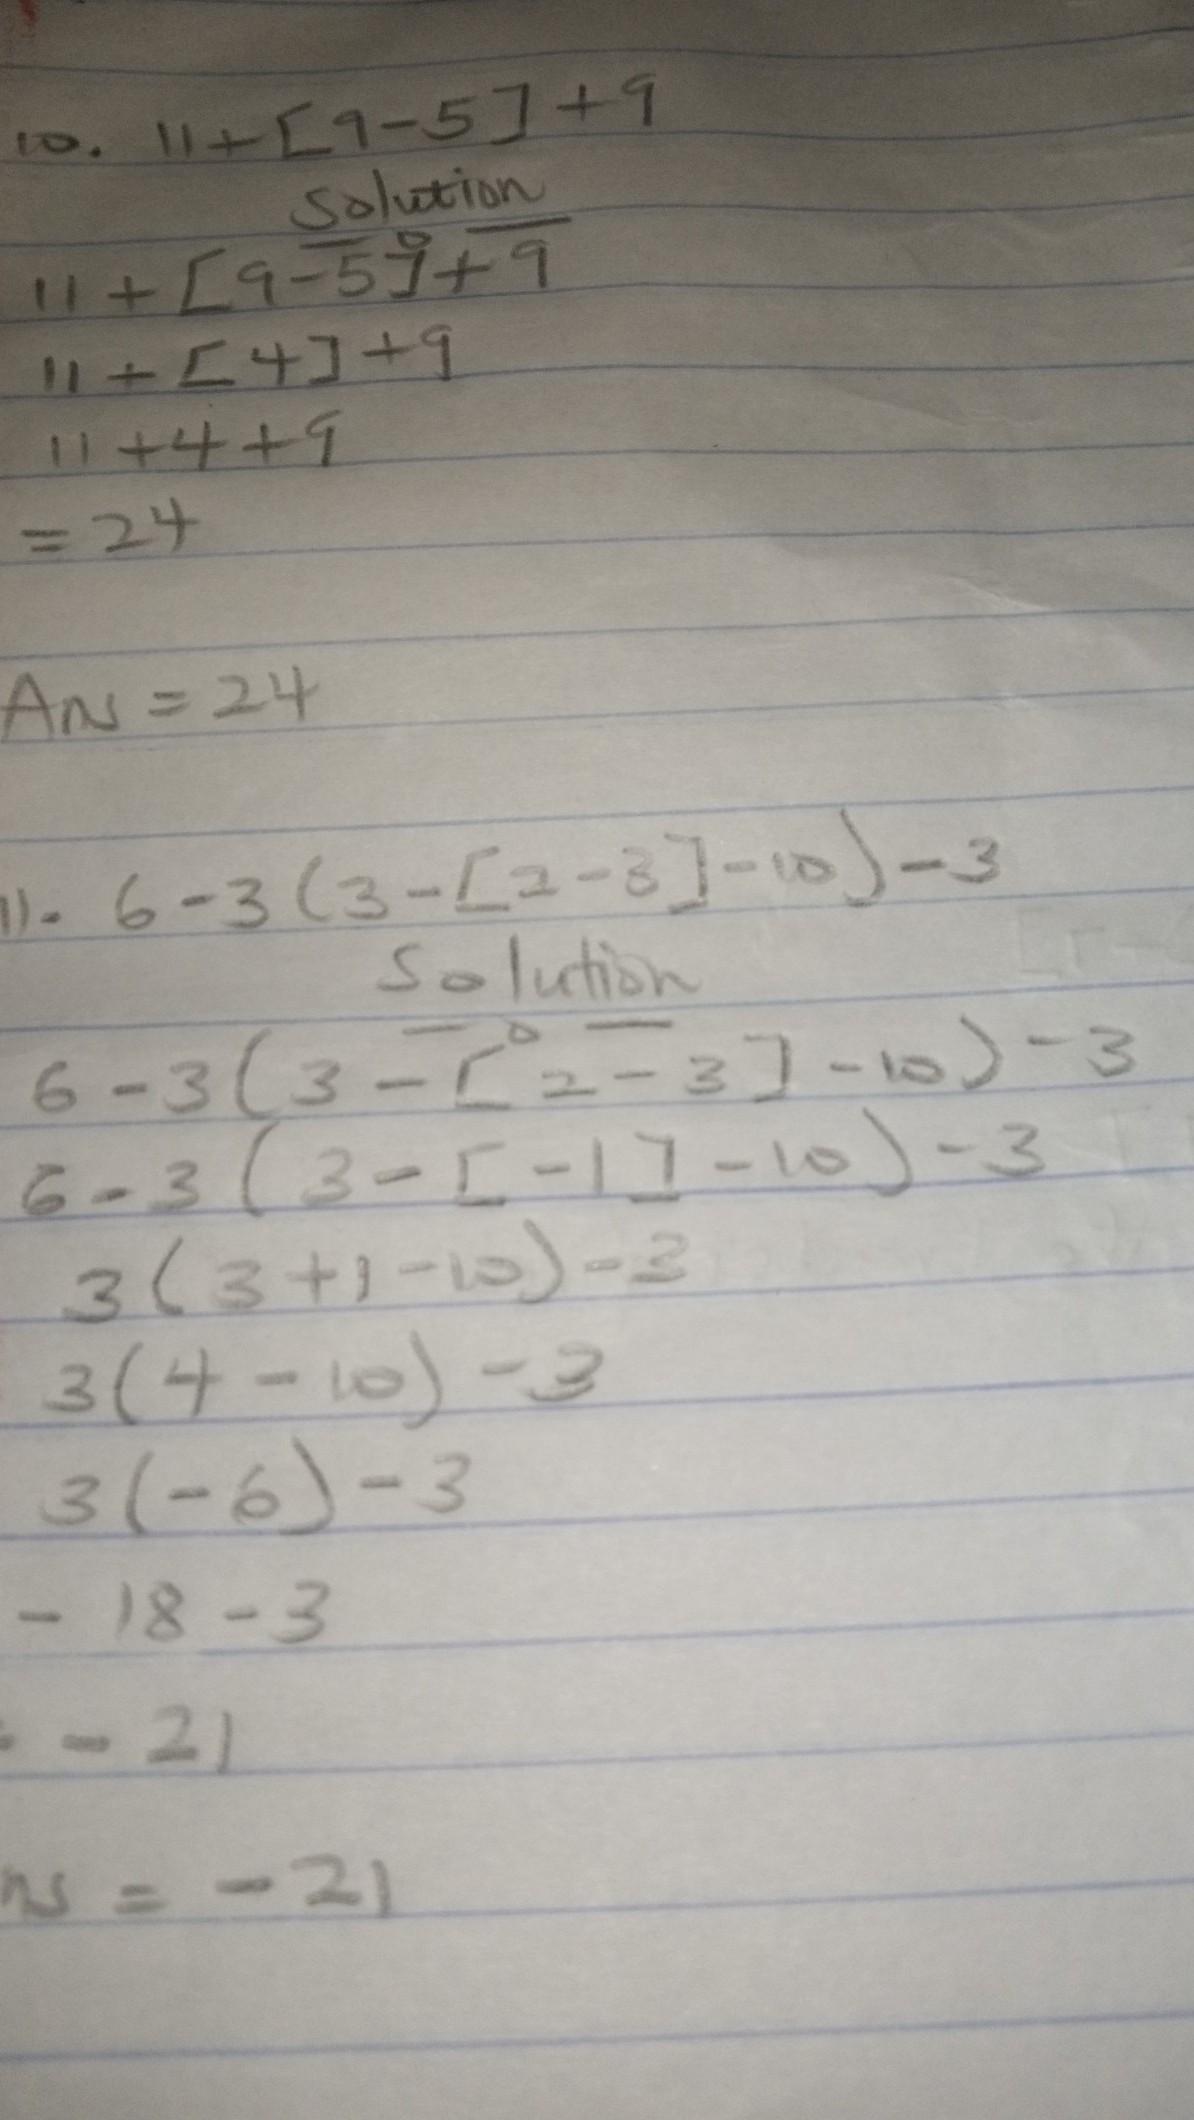 10. 11+[9-5]+9
Solution
11+[9-5]+9
11+[4]+9
11+4+9
=24
Ans=24
11. 6-3(3-[2-3]-10)-3
Solution
6-3(3-[2-3]-10)-3
6-3(3-[-1]-10)-3
3(3+1-10)-3
3(4-10)-3
3(-6)-3
-18-3
-21
ns=-21